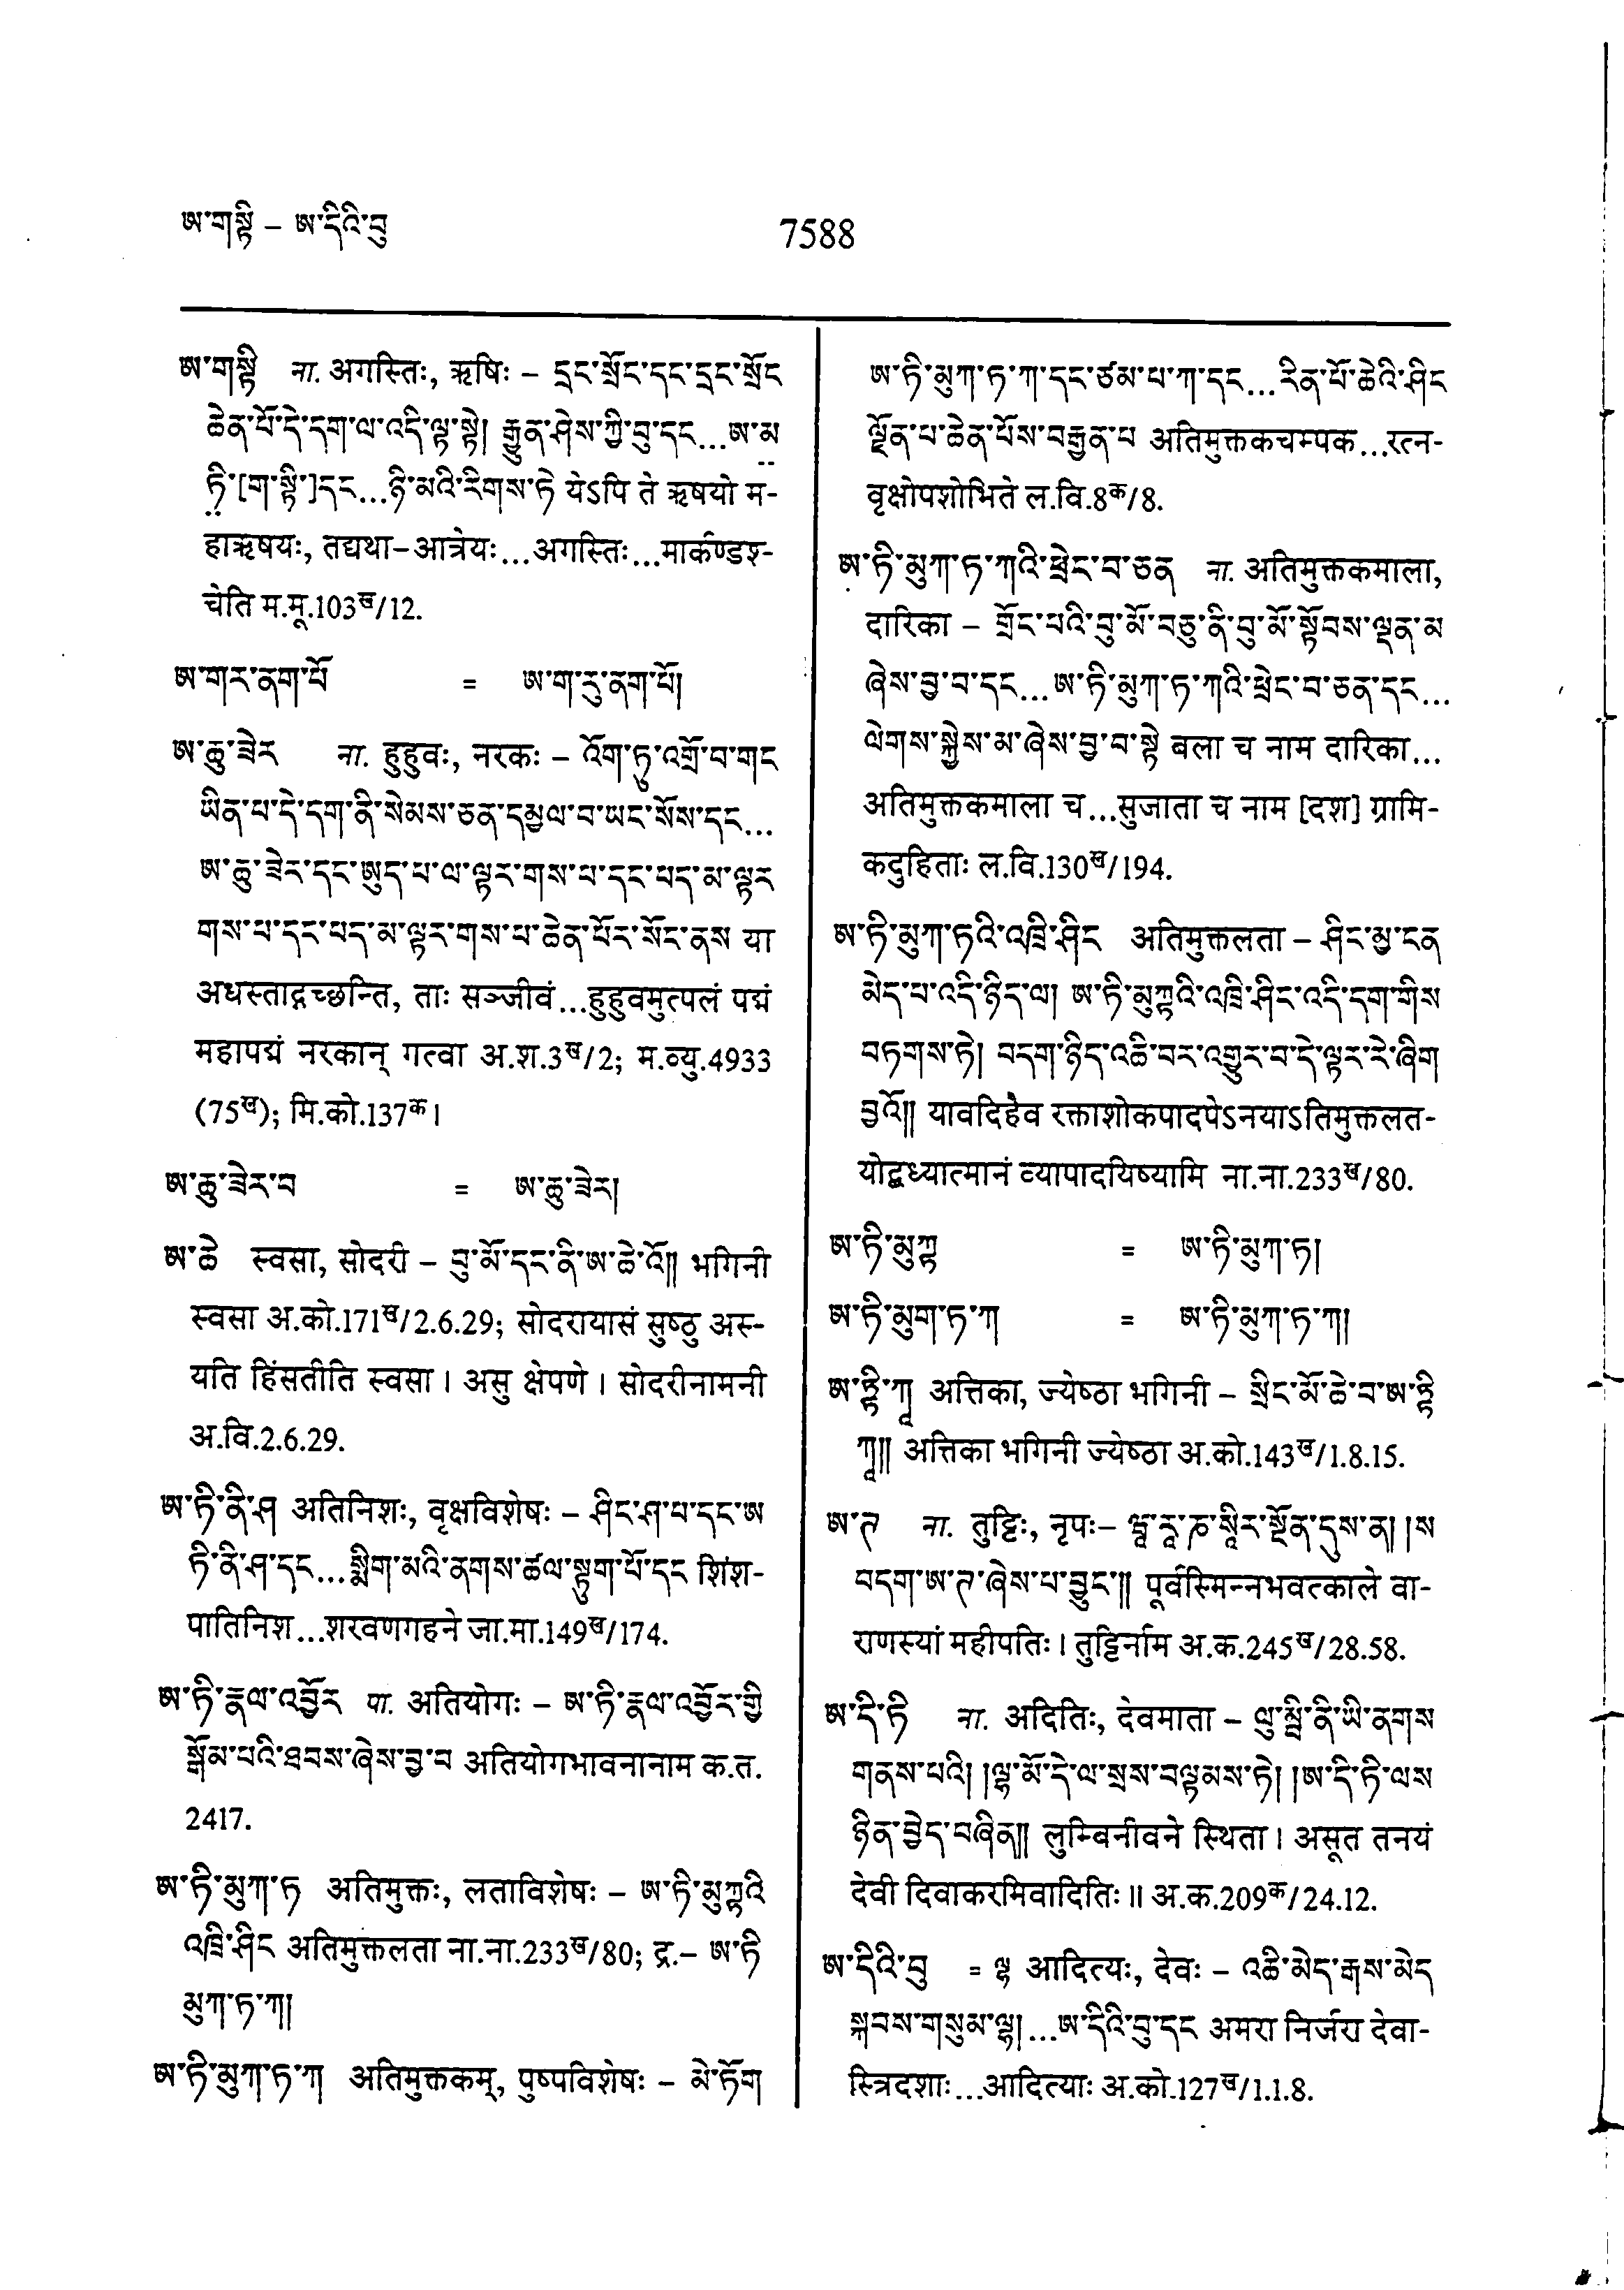 ཨ་གསྟི – ཨ་དིའི་བུ
7588
ཨ་གསྟི ना. अगस्तिः, ऋषिः – དྲང་སྲོང་དང་དྲང་སྲོང
ཆེན་པོ་དེ་དག་ལ་འདི་ལྟ་སྟེ། རྒྱུན་ཤེས་ཀྱི་བུ་དང...ཨ་མ
ཏི་[ག་སྟི་]དང...ཉི་མའི་རིགས་ཏེ येऽपि ते ऋषयो म-
हाऋषयः, तद्यथा–आत्रेयः...अगस्तिः...मार्कण्डश्-
चेति म.मू.103ख/12.
ཨ་གར་ནག་པོ = ཨ་ག་རུ་ནག་པོ།
ཨ་ཆུ་ཟེར ना. हुहुवः, नरकः – འོག་ཏུ་འགྲོ་བ་གང
ཡིན་པ་དེ་དག་ནི་སེམས་ཅན་དམྱལ་བ་ཡང་སོས་དང...
ཨ་ཆུ་ཟེར་དང་ཨུད་པ་ལ་ལྟར་གས་པ་དང་པད་མ་ལྟར
གས་པ་དང་པད་མ་ལྟར་གས་པ་ཆེན་པོར་སོང་ནས या
अधस्ताद्गच्छन्ति, ताः सञ्जीवं...हुहुवमुत्पलं पद्मं
महापद्मं नरकान् गत्वा अ.श.3ख/2; म.व्यु.4933
(75ख); मि.को.137क।
ཨ་ཆུ་ཟེར་བ = ཨ་ཆུ་ཟེར།
ཨ་ཆེ स्वसा, सोदरी – བུ་མོ་དང་ནི་ཨ་ཆེ་འོ།། भगिनी
स्वसा अ.को.171ख/2.6.29; सोदरायासं सुष्ठु अस्-
यति हिंसतीति स्वसा। असु क्षेपणे। सोदरीनामनी
अ.वि.2.6.29.
ཨ་ཏི་ནི་ཤ अतिनिशः, वृक्षविशेषः – ཤིང་ཤ་པ་དང་ཨ
ཏི་ནི་ཤ་དང...སྨིག་མའི་ནགས་ཚལ་སྟུག་པོ་དང शिंश-
पातिनिश...शरवणगहने जा.मा.149ख/174.
ཨ་ཏི་རྣལ་འབྱོར पा. अतियोगः – ཨ་ཏི་རྣལ་འབྱོར་གྱི
སྒོམ་པའི་ཐབས་ཞེས་བྱ་བ अतियोगभावनानाम क.त.
2417.
ཨ་ཏི་མུཀ་ཏ अतिमुक्तः, लताविशेषः – ཨ་ཏི་མུཀྟའི
འཁྲི་ཤིང अतिमुक्तलता ना.ना.233ख/80; द्र.– ཨ་ཏི
མུཀ་ཏ་ཀ།
ཨ་ཏི་མུཀ་ཏ་ཀ अतिमुक्तकम्, पुष्पविशेषः – མེ་ཏོག
ཨ་ཏི་མུཀ་ཏ་ཀ་དང་ཙམ་པ་ཀ་དང...རིན་པོ་ཆེའི་ཤིང
ལྗོན་པ་ཆེན་པོས་བརྒྱན་པ अतिमुक्तकचम्पक...रत्न-
वृक्षोपशोभिते ल.वि.8क/8.
ཨ་ཏི་མུཀ་ཏ་ཀའི་ཕྲེང་བ་ཅན ना. अतिमुक्तकमाला,
दारिका – གྲོང་པའི་བུ་མོ་བཅུ་ནི་བུ་མོ་སྟོབས་ལྡན་མ
ཞེས་བྱ་བ་དང...ཨ་ཏི་མུཀ་ཏ་ཀའི་ཕྲེང་བ་ཅན་དང...
ལེགས་སྐྱེས་མ་ཞེས་བྱ་བ་སྟེ बला च नाम दारिका...
अतिमुक्तकमाला च...सुजाता च नाम [दश] ग्रामि-
कदुहिताः ल.वि.130ख/194.
ཨ་ཏི་མུཀ་ཏའི་འཁྲི་ཤིང अतिमुक्तलता – ཤིང་མྱ་ངན
མེད་པ་འདི་ཉིད་ལ། ཨ་ཏི་མུཀྟའི་འཁྲི་ཤིང་འདི་དག་གིས
བཏགས་ཏེ། བདག་ཉིད་འཆི་བར་འགྱུར་བ་དེ་ལྟར་རེ་ཞིག
བྱའོ།། यावदिहैव रक्ताशोकपादपेऽनयाऽतिमुक्तलत-
योद्बध्यात्मानं व्यापादयिष्यामि ना.ना.233ख/80.
ཨ་ཏི་མུཀྟ = ཨ་ཏི་མུཀ་ཏ།
ཨ་ཏི་མུག་ཏ་ཀ = ཨ་ཏི་མུཀ་ཏ་ཀ།
ཨ་ཏྟི་ཀཱ अत्तिका, ज्येष्ठा भगिनी – སྲིང་མོ་ཆེ་བ་ཨ་ཏྟི
ཀཱ།། अत्तिका भगिनी ज्येष्ठा अ.को.143ख/1.8.15.
ཨ་ཏ ना. तुट्टिः, नृपः– ཝཱ་རཱ་ཎ་སཱིར་སྔོན་དུས་ན། །ས
བདག་ཨ་ཏ་ཞེས་པ་བྱུང་།། पूर्वस्मिन्नभवत्काले वा-
राणस्यां महीपतिः। तुट्टिर्नाम अ.क.245ख/28.58.
ཨ་དི་ཏི ना. अदितिः, देवमाता – ལུ་མྦི་ནི་ཡི་ནགས
གནས་པའི། །ལྷ་མོ་དེ་ལ་སྲས་བལྟམས་ཏེ། །ཨ་དི་ཏི་ལས
ཉིན་བྱེད་བཞིན།། लुम्बिनीवने स्थिता। असूत तनयं
देवी दिवाकरमिवादितिः॥ अ.क.209क/24.12.
ཨ་དིའི་བུ = ལྷ आदित्यः, देवः – འཆི་མེད་རྒས་མེད
སྐབས་གསུམ་ལྷ།...ཨ་དིའི་བུ་དང अमरा निर्जरा देवा-
स्त्रिदशाः...आदित्याः अ.को.127ख/1.1.8.